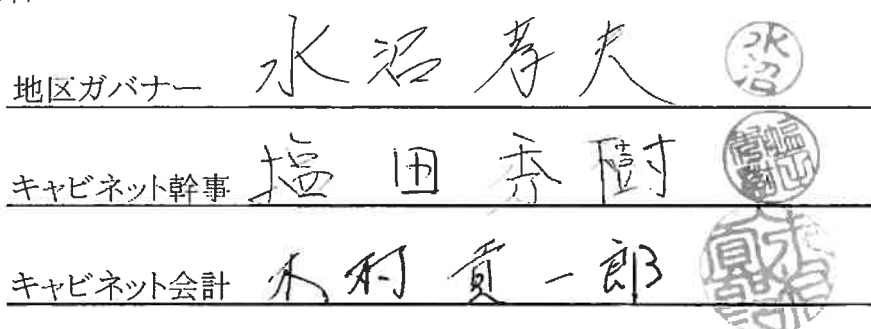 地区ガバナー 水沼孝夫 水沼
キャビネット幹事 塩田秀樹
キャビネット会計 木村貢一郎